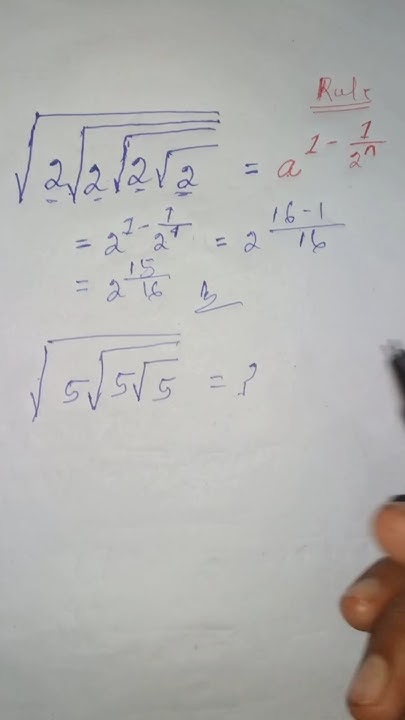 Rule
√2√2√2√2 = a^{1 - 1/2^n}
= 2^{1 - 1/2^4} = 2^{16-1/16}
= 2^{15/16}
√5√5√5 = ?